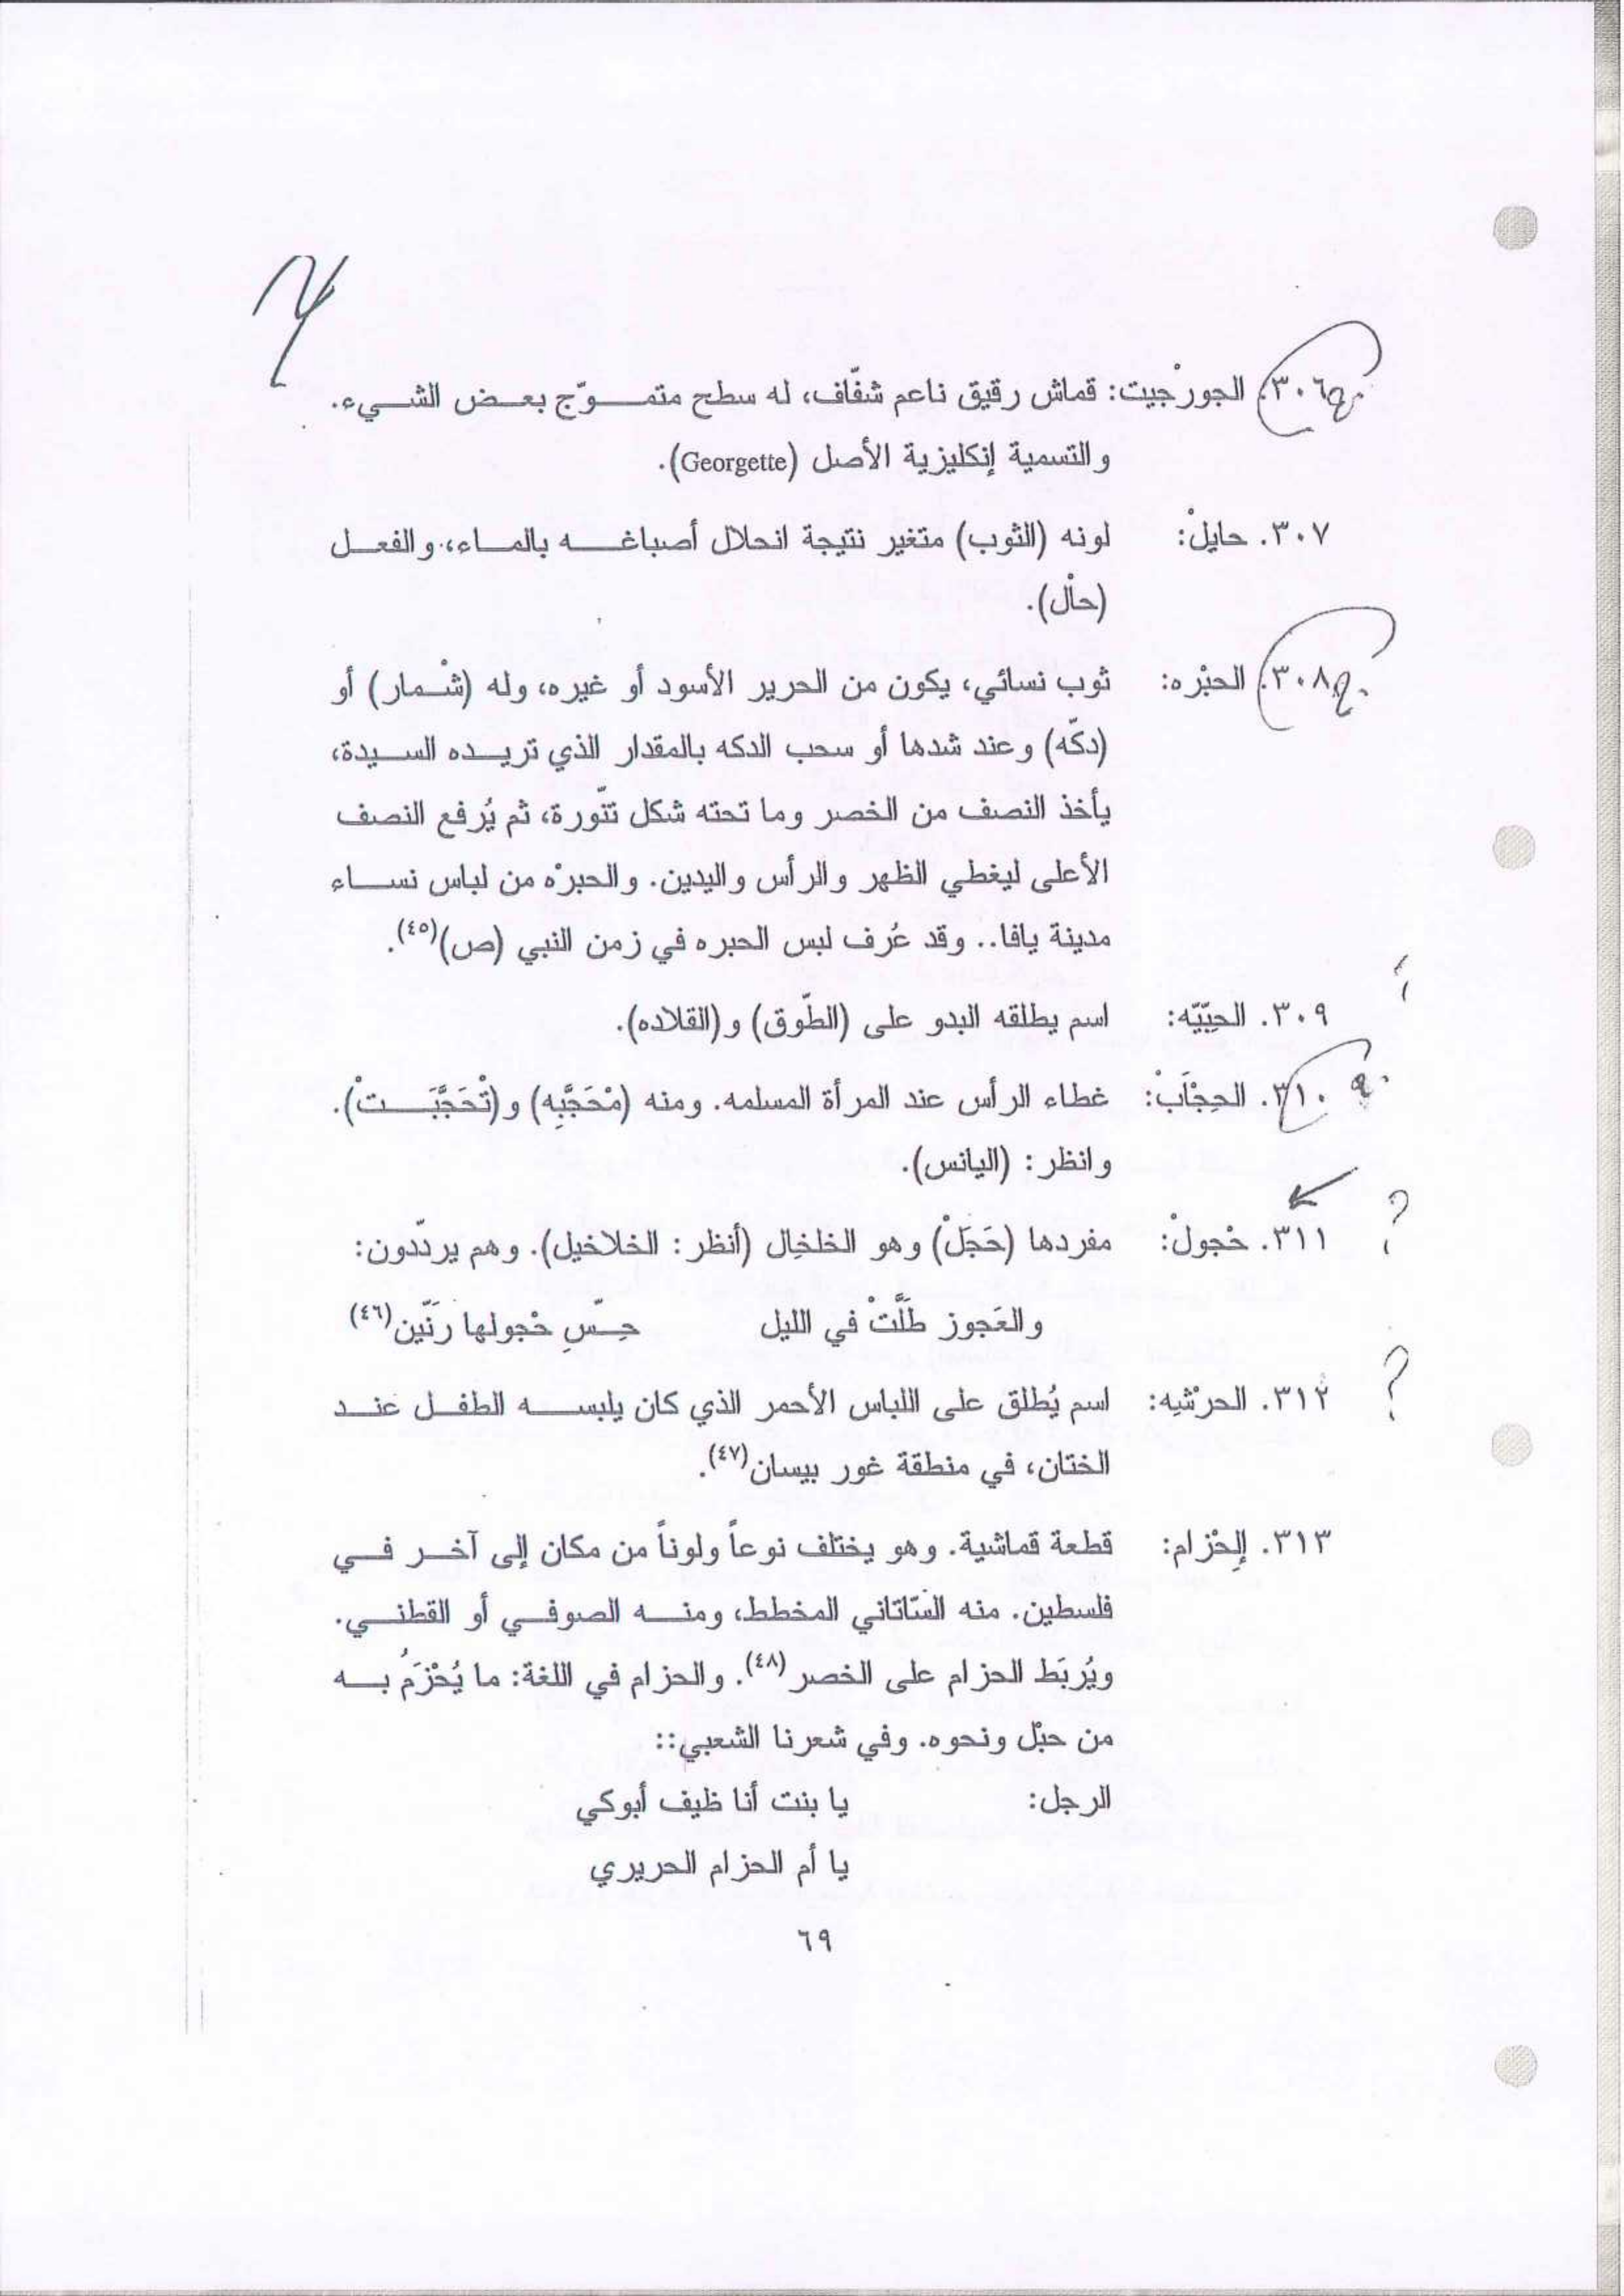 ٣٠٦. الجورْجيت: قماش رقيق ناعم شفّاف، له سطح متموّج بعض الشيء.
والتسمية إنكليزية الأصل (Georgette).
٣٠٧. حايلْ: لونه (الثوب) متغير نتيجة انحلال أصباغه بالماء، والفعل
(حاْل).
٣٠٨. الحبْره: ثوب نسائي، يكون من الحرير الأسود أو غيره، وله (شْمار) أو
(دكّه) وعند شدها أو سحب الدكه بالمقدار الذي تريده السيدة،
يأخذ النصف من الخصر وما تحته شكل تنّورة، ثم يُرفع النصف
الأعلى ليغطي الظهر والرأس واليدين. والحبرْه من لباس نساء
مدينة يافا.. وقد عُرف لبس الحبره في زمن النبي (ص)(٤٥).
٣٠٩. الحِبّيّه: اسم يطلقه البدو على (الطّوق) و(القلاده).
٣١٠. الحِجْاَبْ: غطاء الرأس عند المرأة المسلمه. ومنه (مْحَجَّبِه) و(تْحَجَّبَتْ).
وانظر: (اليانس).
٣١١. حْجولْ: مفردها (حَجَلْ) وهو الخلخال (أنظر: الخلاخيل). وهم يردّدون:
والعَجوز طَلَّتْ في الليل حِسّ حْجولها رَنّين(٤٦)
٣١٢. الحرْشِيه: اسم يُطلق على اللباس الأحمر الذي كان يلبسه الطفل عند
الختان، في منطقة غور بيسان(٤٧).
٣١٣. إلِحْزام: قطعة قماشية. وهو يختلف نوعاً ولوناً من مكان إلى آخر في
فلسطين. منه السّاتاني المخطط، ومنه الصوفي أو القطني.
ويُربَط الحزام على الخصر (٤٨). والحزام في اللغة: ما يُحْزَمُ به
من حبْل ونحوه. وفي شعرنا الشعبي::
الرجل: يا بنت أنا ظيف أبوكي
يا أم الحزام الحريري
٦٩